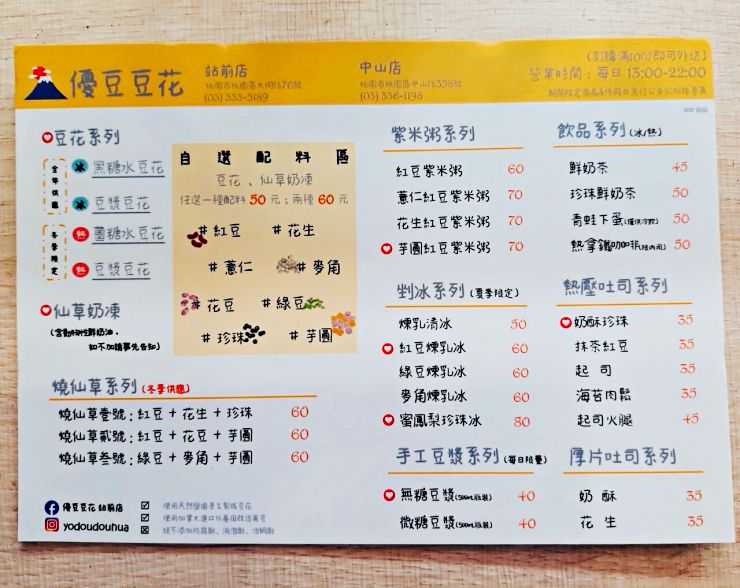 優豆豆花
站前店
桃園市桃園區大同路76號
(03) 333-5189
中山店
桃園市桃園區中山路358號
(03) 336-1198
(訂購滿100元即可外送)
營業時間：每日 13:00-22:00
豆花系列
全年供應
冰 黑糖水豆花
冰 豆漿豆花
冬季限定
熱 薑糖水豆花
熱 豆漿豆花
仙草奶凍
如不加請事先告知)
自選配料區
豆花、仙草奶凍
任選一種配料 50 元；兩種 60 元
#紅豆 #花生
#薏仁 #麥角
#花豆 #綠豆
#珍珠 #芋圓
燒仙草系列 (冬季供應)
燒仙草壹號：紅豆＋花生＋珍珠 60
燒仙草貳號：紅豆＋花豆＋芋圓 60
燒仙草叁號：綠豆＋麥角＋芋圓 60
優豆豆花 站前店
yodoudouhua
使用天然鹽滷手工製成豆花
使用加拿大進口非基因改造黃豆
絕不添加防腐劑、消泡劑、
紫米粥系列
紅豆紫米粥 60
薏仁紅豆紫米粥 70
花生紅豆紫米粥 70
芋圓紅豆紫米粥 70
剉冰系列 (夏季限定)
煉乳清冰 50
紅豆煉乳冰 60
綠豆煉乳冰 60
麥角煉乳冰 60
蜜鳳梨珍珠冰 80
手工豆漿系列 (每日限量)
無糖豆漿(500ml瓶裝) 40
微糖豆漿(500ml瓶裝) 40
飲品系列 (冰/熱)
鮮奶茶 45
珍珠鮮奶茶 50
青蛙下蛋(僅供冷飲) 50
熱拿鐵咖啡(限內用) 50
熱壓吐司系列
奶酥珍珠 35
抹茶紅豆 35
起司 35
海苔肉鬆 35
起司火腿 45
厚片吐司系列
奶酥 35
花生 35